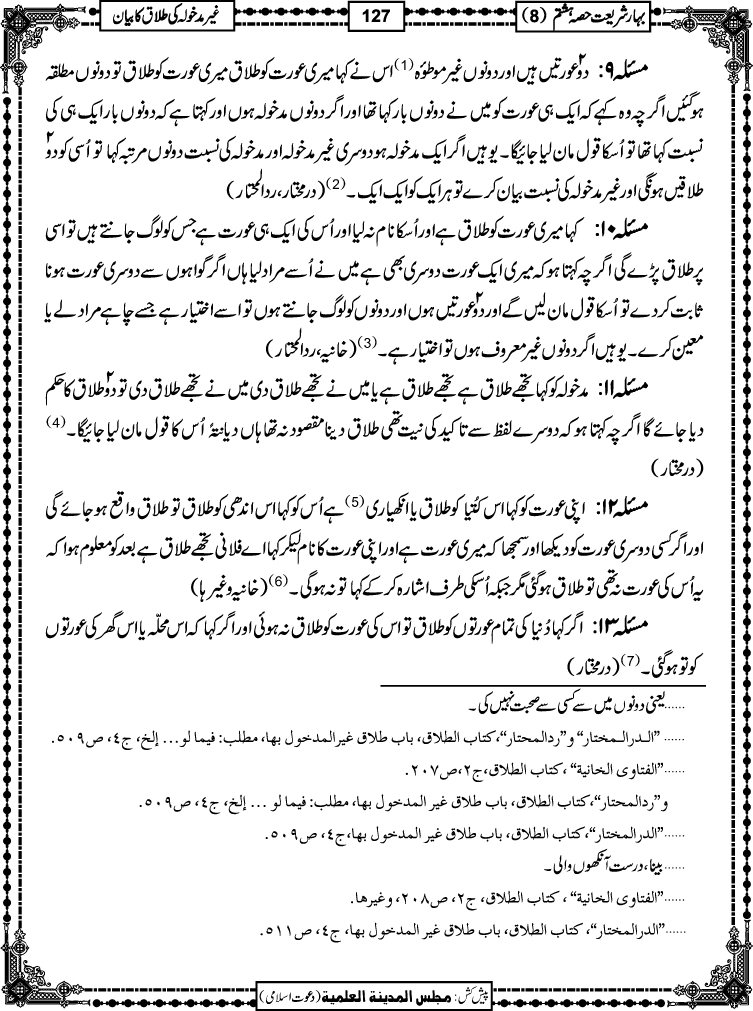 بہارِ شریعت حصہ ہشتم (8)
127
غیر مدخولہ کی طلاق کا بیان
مسئلہ ۹: دو۲ عورتیں ہیں اور دونوں غیر موطؤہ (1) اس نے کہا میری عورت کو طلاق میری عورت کو طلاق تو دونوں مطلقہ
ہو گئیں اگرچہ وہ کہے کہ ایک ہی عورت کو میں نے دونوں بار کہا تھا اور اگر دونوں مدخولہ ہوں اور کہتا ہے کہ دونوں بار ایک ہی کی
نسبت کہا تھا تو اُسکا قول مان لیا جائیگا۔ یوہیں اگر ایک مدخولہ ہو دوسری غیر مدخولہ اور مدخولہ کی نسبت دونوں مرتبہ کہا تو اُسی کو دو۲
طلاقیں ہونگی اور غیر مدخولہ کی نسبت بیان کرے تو ہر ایک کو ایک ایک۔ (2) (درمختار، ردالمحتار)
مسئلہ ۱۰: کہا میری عورت کو طلاق ہے اور اُسکا نام نہ لیا اور اُس کی ایک ہی عورت ہے جس کو لوگ جانتے ہیں تو اسی
پر طلاق پڑے گی اگرچہ کہتا ہو کہ میری ایک عورت دوسری بھی ہے میں نے اُسے مراد لیا ہاں اگر گواہوں سے دوسری عورت ہونا
ثابت کردے تو اُسکا قول مان لیں گے اور دو۲ عورتیں ہوں اور دونوں کو لوگ جانتے ہوں تو اسے اختیار ہے جسے چاہے مراد لے یا
معین کرے۔ یوہیں اگر دونوں غیر معروف ہوں تو اختیار ہے۔ (3) (خانیہ، ردالمحتار)
مسئلہ ۱۱: مدخولہ کو کہا تجھے طلاق ہے تجھے طلاق ہے یا میں نے تجھے طلاق دی میں نے تجھے طلاق دی تو دو۲ طلاق کا حکم
دیا جائے گا اگرچہ کہتا ہو کہ دوسرے لفظ سے تاکید کی نیت تھی طلاق دینا مقصود نہ تھا ہاں دیانۃً اُس کا قول مان لیا جائیگا۔ (4)
(درمختار)
مسئلہ ۱۲: اپنی عورت کو کہا اس کُتیا کو طلاق یا انکھیاری (5) ہے اُس کو کہا اس اندھی کو طلاق تو طلاق واقع ہو جائے گی
اور اگر کسی دوسری عورت کو دیکھا اور سمجھا کہ میری عورت ہے اور اپنی عورت کا نام لیکر کہا اے فلانی تجھے طلاق ہے بعد کو معلوم ہوا کہ
یہ اُس کی عورت نہ تھی تو طلاق ہوگئی مگر جبکہ اُسکی طرف اشارہ کر کے کہا تو نہ ہوگی۔ (6) (خانیہ وغیرہا)
مسئلہ ۱۳: اگر کہا دُنیا کی تمام عورتوں کو طلاق تو اس کی عورت کو طلاق نہ ہوئی اور اگر کہا کہ اس محلّہ یا اس گھر کی عورتوں
کو تو ہوگئی۔ (7) (درمختار)
......یعنی دونوں میں سے کسی سے صحبت نہیں کی۔
...... ”الـدرالـمختار“ و”ردالمحتار“، کتاب الطلاق، باب طلاق غیرالمدخول بھا، مطلب: فیما لو... إلخ، ج٤، ص٥٠٩.
......”الفتاوی الخانیة“ ، کتاب الطلاق، ج٢، ص٢٠٧.
و”ردالمحتار“، کتاب الطلاق، باب طلاق غیر المدخول بھا، مطلب: فیما لو ... إلخ، ج٤، ص٥٠٩.
......”الدرالمختار“، کتاب الطلاق، باب طلاق غیر المدخول بھا، ج٤، ص٥٠٩.
...... بینا، درست آنکھوں والی۔
......”الفتاوی الخانیة“ ، کتاب الطلاق، ج٢، ص٢٠٨، وغیرھا.
......”الدرالمختار“، کتاب الطلاق، باب طلاق غیر المدخول بھا، ج٤، ص٥١١.
پیش کش: مجلس المدینة العلمیة (دعوت اسلامی)